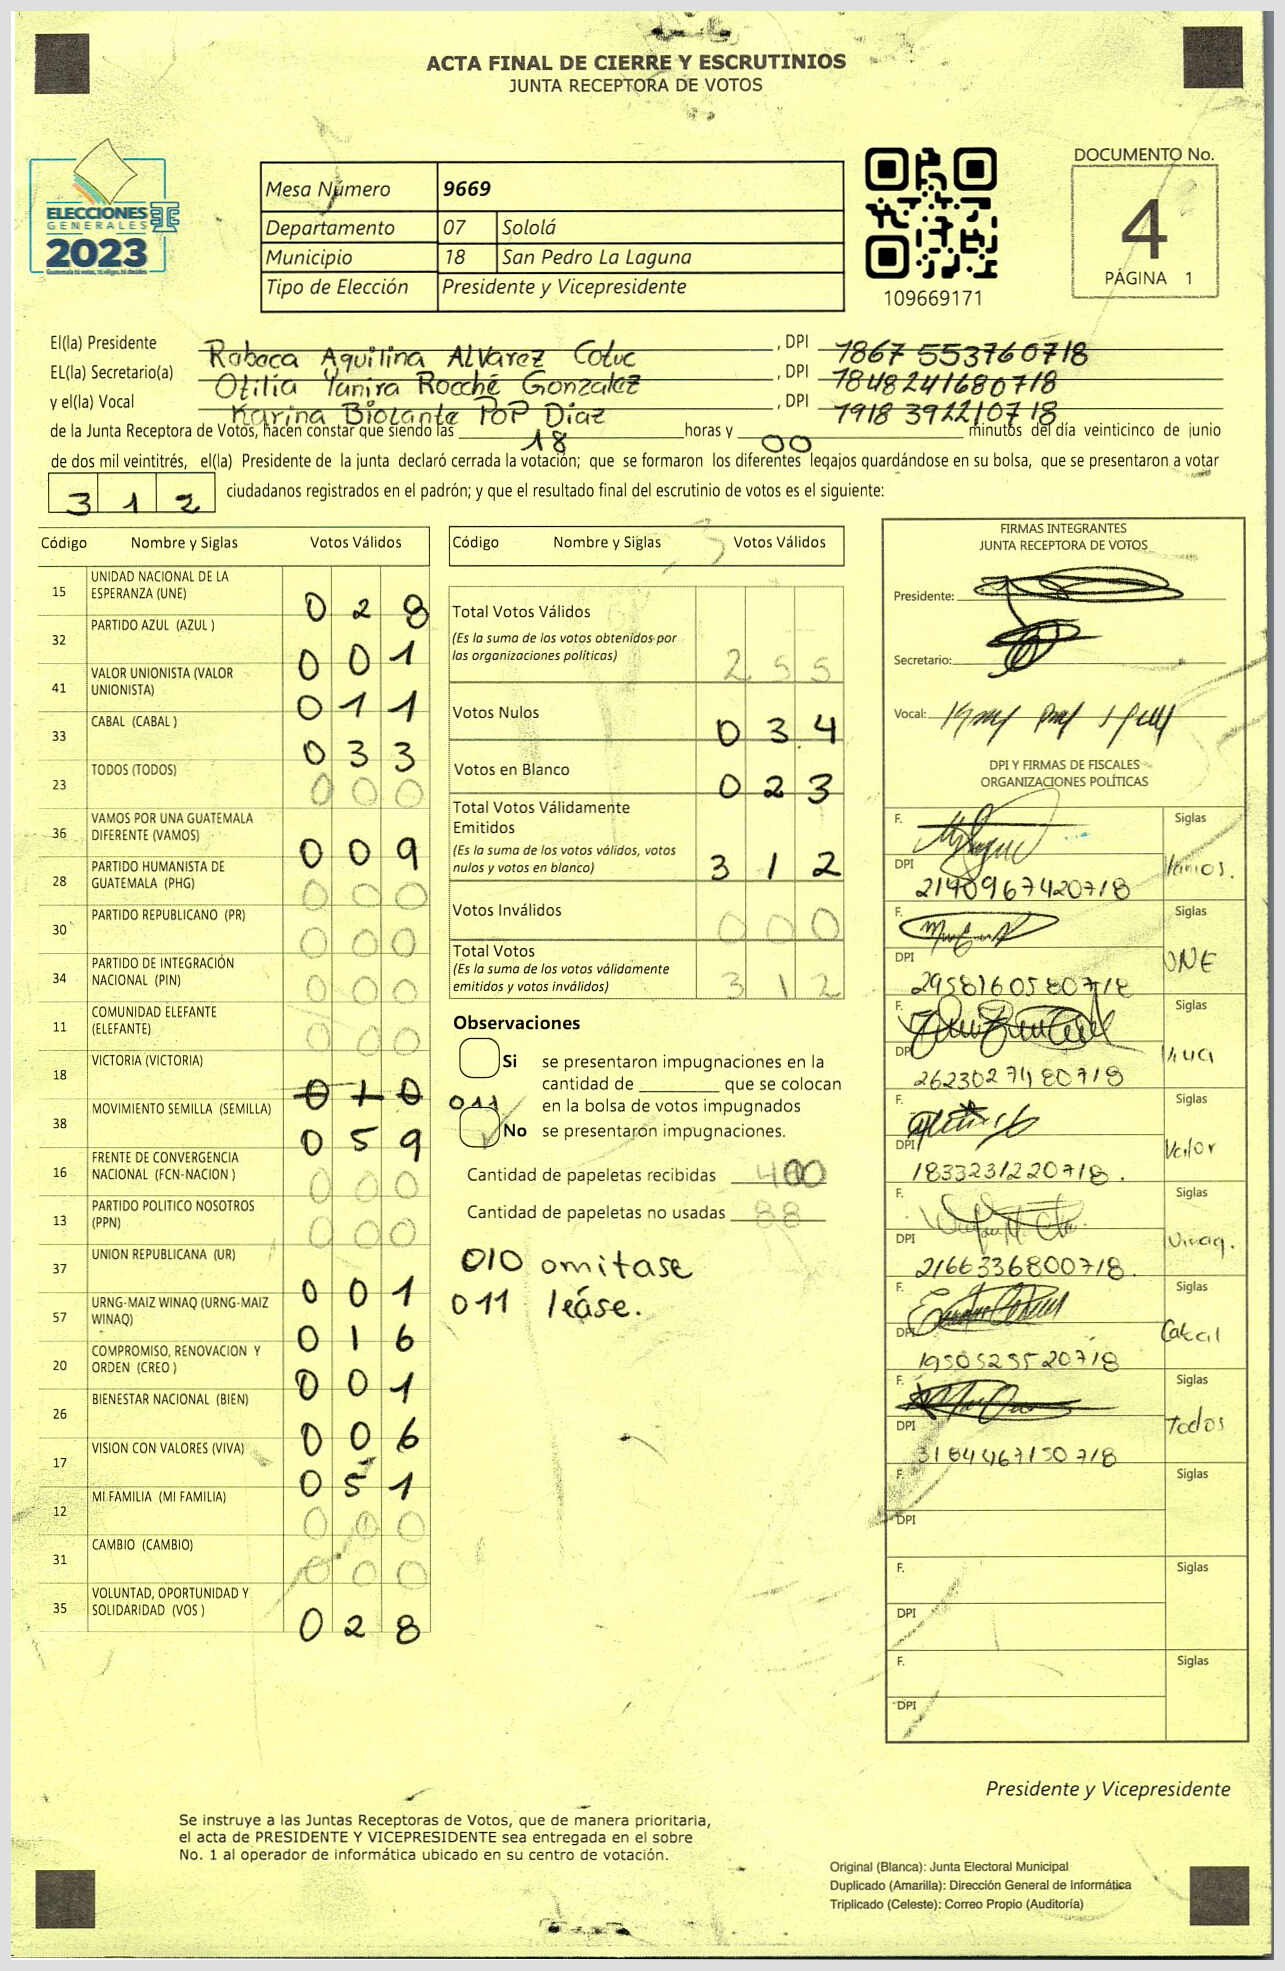 ACTA FINAL DE CIERRE Y ESCRUTINIOS
JUNTA RECEPTORA DE VOTOS
ELECCIONES
GENERALES
2023
Mesa Número 9669
Departamento 07 Sololá
Municipio 18 San Pedro La Laguna
Tipo de Elección Presidente y Vicepresidente
109669171
DOCUMENTO No.
4
PÁGINA 1
El(la) Presidente Rabaca Aquilina Alvarez Cotuc , DPI 1867 553760718
EL(la) Secretario(a) Otilia Yanira Rocché Gonzalez , DPI 1848241680718
y el(la) Vocal Karina Biolante Pop Diaz , DPI 1918 392210718
de la Junta Receptora de Votos, hacen constar que siendo las 18 horas y 00 minutos del día veinticinco de junio
de dos mil veintitrés, el(la) Presidente de la junta declaró cerrada la votación; que se formaron los diferentes legajos guardándose en su bolsa, que se presentaron a votar
312 ciudadanos registrados en el padrón; y que el resultado final del escrutinio de votos es el siguiente:
Código Nombre y Siglas Votos Válidos
15 UNIDAD NACIONAL DE LA ESPERANZA (UNE) 028
32 PARTIDO AZUL (AZUL ) 001
41 VALOR UNIONISTA (VALOR UNIONISTA) 011
33 CABAL (CABAL ) 033
23 TODOS (TODOS) 000
36 VAMOS POR UNA GUATEMALA DIFERENTE (VAMOS) 009
28 PARTIDO HUMANISTA DE GUATEMALA (PHG) 000
30 PARTIDO REPUBLICANO (PR) 000
34 PARTIDO DE INTEGRACIÓN NACIONAL (PIN) 000
11 COMUNIDAD ELEFANTE (ELEFANTE) 000
18 VICTORIA (VICTORIA) 010 011
38 MOVIMIENTO SEMILLA (SEMILLA) 059
16 FRENTE DE CONVERGENCIA NACIONAL (FCN-NACION ) 000
13 PARTIDO POLITICO NOSOTROS (PPN) 000
37 UNION REPUBLICANA (UR) 001
57 URNG-MAIZ WINAQ (URNG-MAIZ WINAQ) 016
20 COMPROMISO, RENOVACION Y ORDEN (CREO ) 001
26 BIENESTAR NACIONAL (BIEN) 006
17 VISION CON VALORES (VIVA) 051
12 MI FAMILIA (MI FAMILIA) 000
31 CAMBIO (CAMBIO) 000
35 VOLUNTAD, OPORTUNIDAD Y SOLIDARIDAD (VOS ) 028
Código Nombre y Siglas Votos Válidos
Total Votos Válidos 255
(Es la suma de los votos obtenidos por
las organizaciones políticas)
Votos Nulos 034
Votos en Blanco 023
Total Votos Válidamente
Emitidos
(Es la suma de los votos válidos, votos
nulos y votos en blanco) 312
Votos Inválidos 000
Total Votos
(Es la suma de los votos válidamente
emitidos y votos inválidos) 312
Observaciones
Si se presentaron impugnaciones en la
cantidad de ________ que se colocan
en la bolsa de votos impugnados
No se presentarón impugnaciones.
Cantidad de papeletas recibidas 400
Cantidad de papeletas no usadas 88
010 omitase
011 leáse.
FIRMAS INTEGRANTES
JUNTA RECEPTORA DE VOTOS
Presidente:
Secretario:
Vocal:
DPI Y FIRMAS DE FISCALES
ORGANIZACIONES POLÍTICAS
F. Siglas
DPI 2140967420718
F. Siglas UNE
DPI 2958160580718
F. Siglas
DPI 2623027480718
F. Siglas Valor
DPI 1833231220718.
F. Siglas Winaq.
DPI 2166336800718.
F. Siglas Cabal
DPI 1950525520718
F. Siglas Todos
DPI 3184467150718
F. Siglas
DPI
F. Siglas
DPI
F. Siglas
DPI
Presidente y Vicepresidente
Se instruye a las Juntas Receptoras de Votos, que de manera prioritaria,
el acta de PRESIDENTE Y VICEPRESIDENTE sea entregada en el sobre
No. 1 al operador de informática ubicado en su centro de votación.
Original (Blanca): Junta Electoral Municipal
Duplicado (Amarilla): Dirección General de Informática
Triplicado (Celeste): Correo Propio (Auditoría)